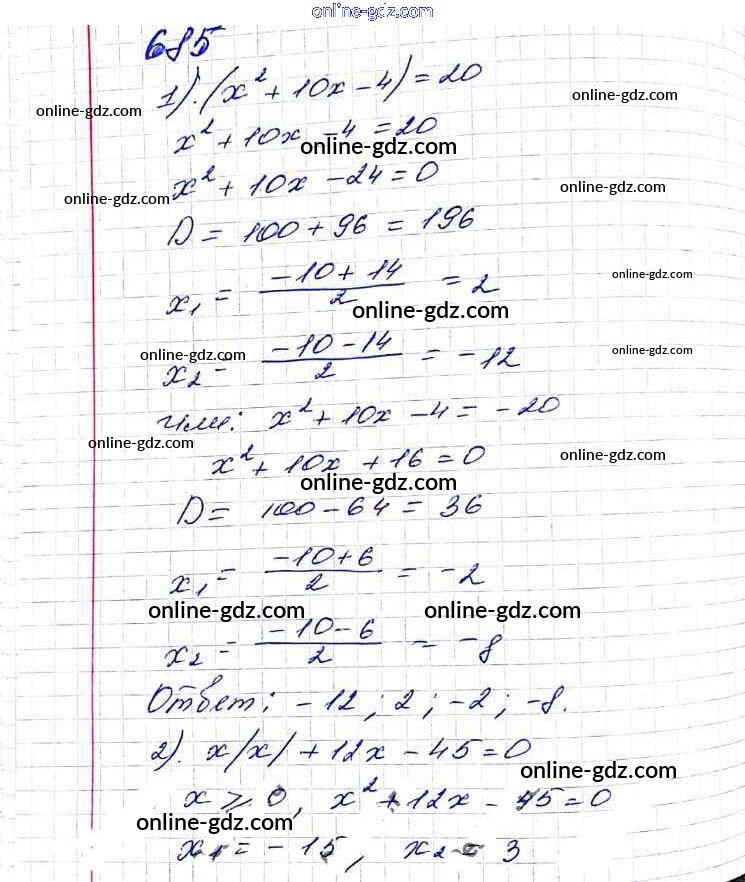 online-gdz.com
685
1). (x² + 10x - 4) = 20
online-gdz.com online-gdz.com
x² + 10x - 4 = 20
online-gdz.com
x² + 10x - 24 = 0
online-gdz.com online-gdz.com
D = 100 + 96 = 196
x₁ = (-10 + 14)/2 = 2
online-gdz.com online-gdz.com
x₂ = (-10 - 14)/2 = -12
online-gdz.com online-gdz.com
или: x² + 10x - 4 = -20
online-gdz.com
x² + 10x + 16 = 0
online-gdz.com online-gdz.com
D = 100 - 64 = 36
x₁ = (-10 + 6)/2 = -2
online-gdz.com online-gdz.com
x₂ = (-10 - 6)/2 = -8
Ответ: -12; 2; -2; -8.
2). x/x/ + 12x - 45 = 0
online-gdz.com
x ⩾ 0, x² + 12x - 45 = 0
online-gdz.com
x₁ = -15, x₂ = 3